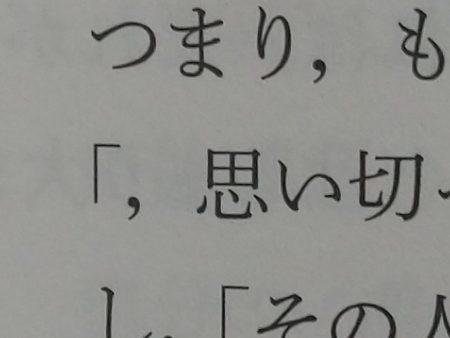 つまり，も
「，思い切
し，「その人